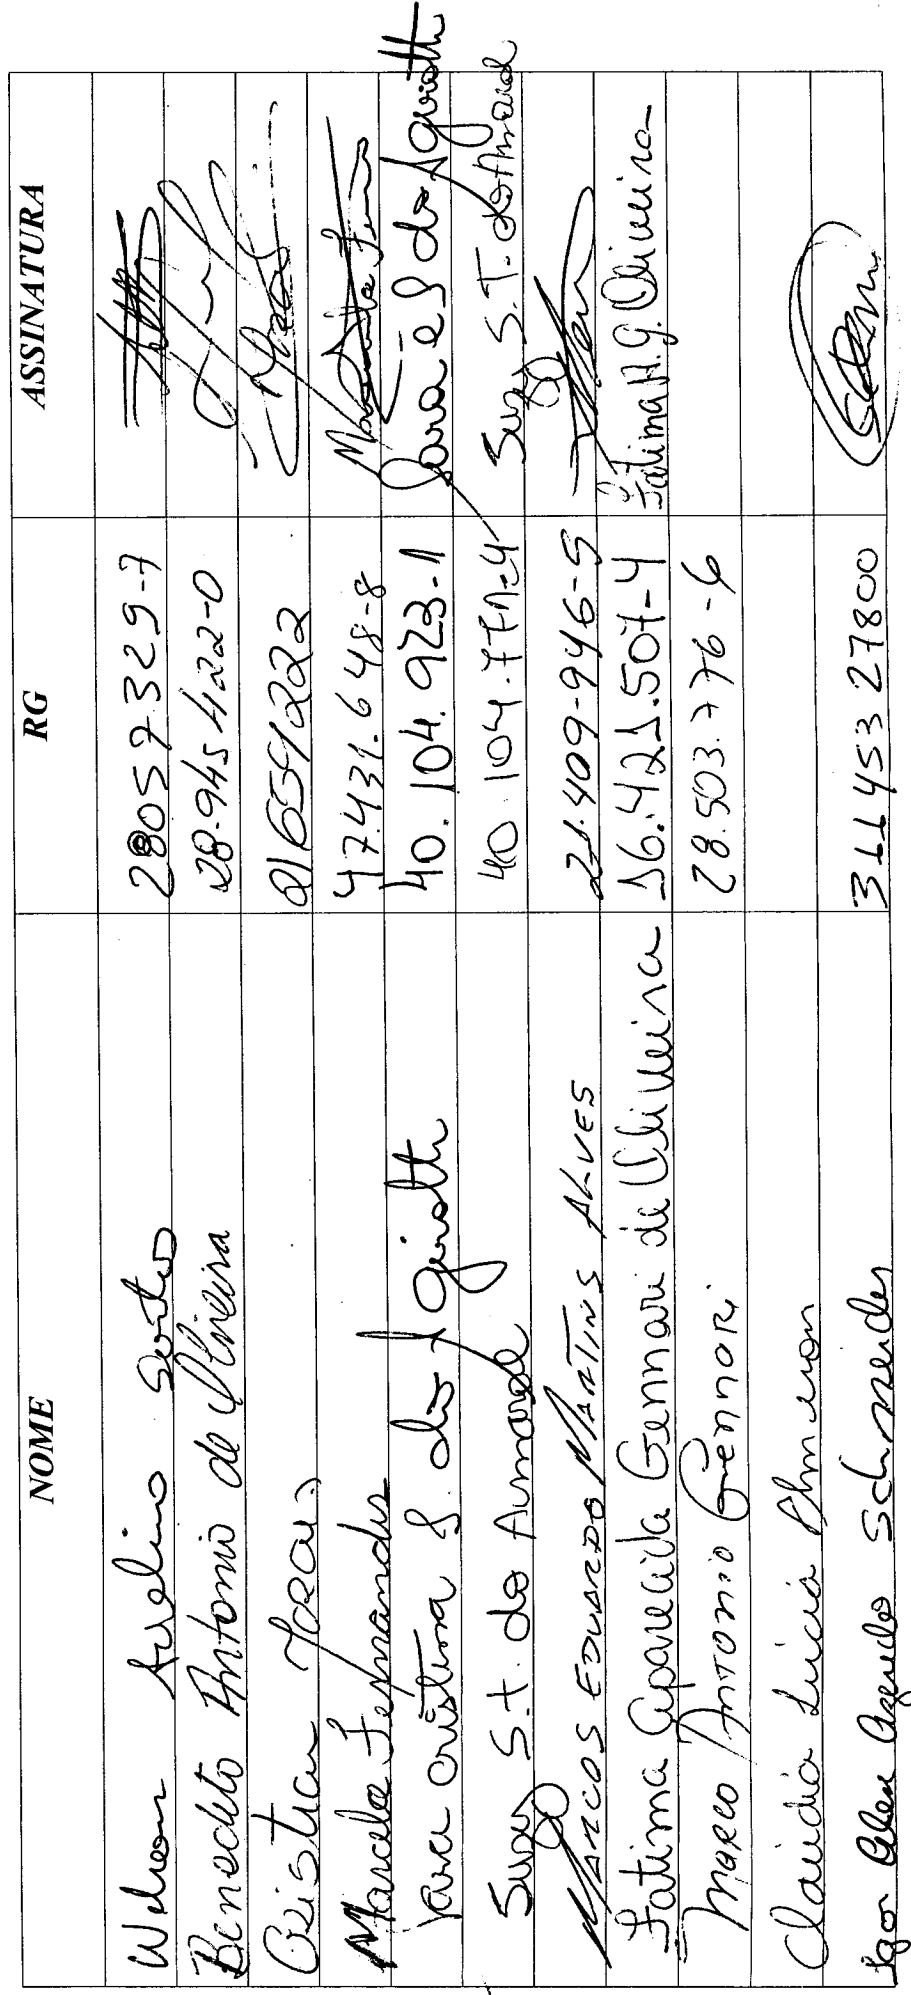 NOME RG ASSINATURA
Wilson Avelino Santos 28057329-7
Benedito Antonio de Oliveira 28.945.422-0
Cristian 21654222
Marcela Fernandes 47.431.648-8 Marcela Fernandes
Iara Cristina S. dos S Girotto 40.104.923-1 Iara C S dos S Girotto
Suzy S.T. do Amaral 40.104.771-4 Suzy S.T. do Amaral
MARCOS EDUARDO MARTINS ALVES 21.409-946-5
Fatima Aparecida Gennari de Oliveira 16.421.507-4 Fatima A. G. Oliveira
Marco Antonio Gennari 28.503.776-6
Claudia Lúcia
Igor Alen Azevedo Schneider 311 453 27800